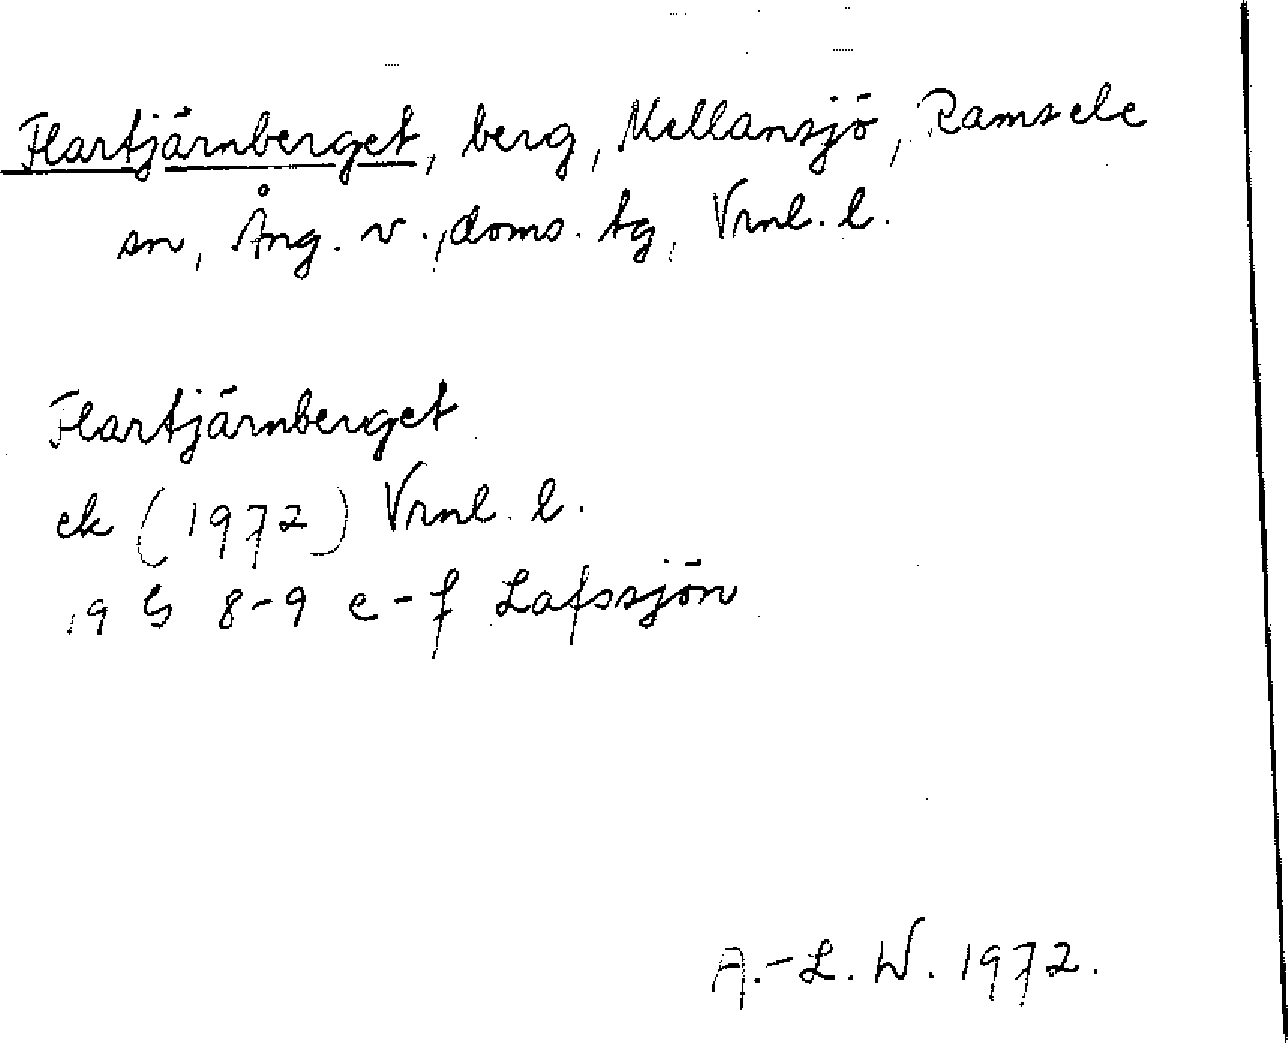 Flartjärnberget, berg, Mellansjö, Ramsele
sn, Ång. v., doms. tg, Vrnl. l.
Flartjärnberget
ek (1972) Vrnl. l.
19 G 8-9 e-f Lafssjön
A.-L. W. 1972.